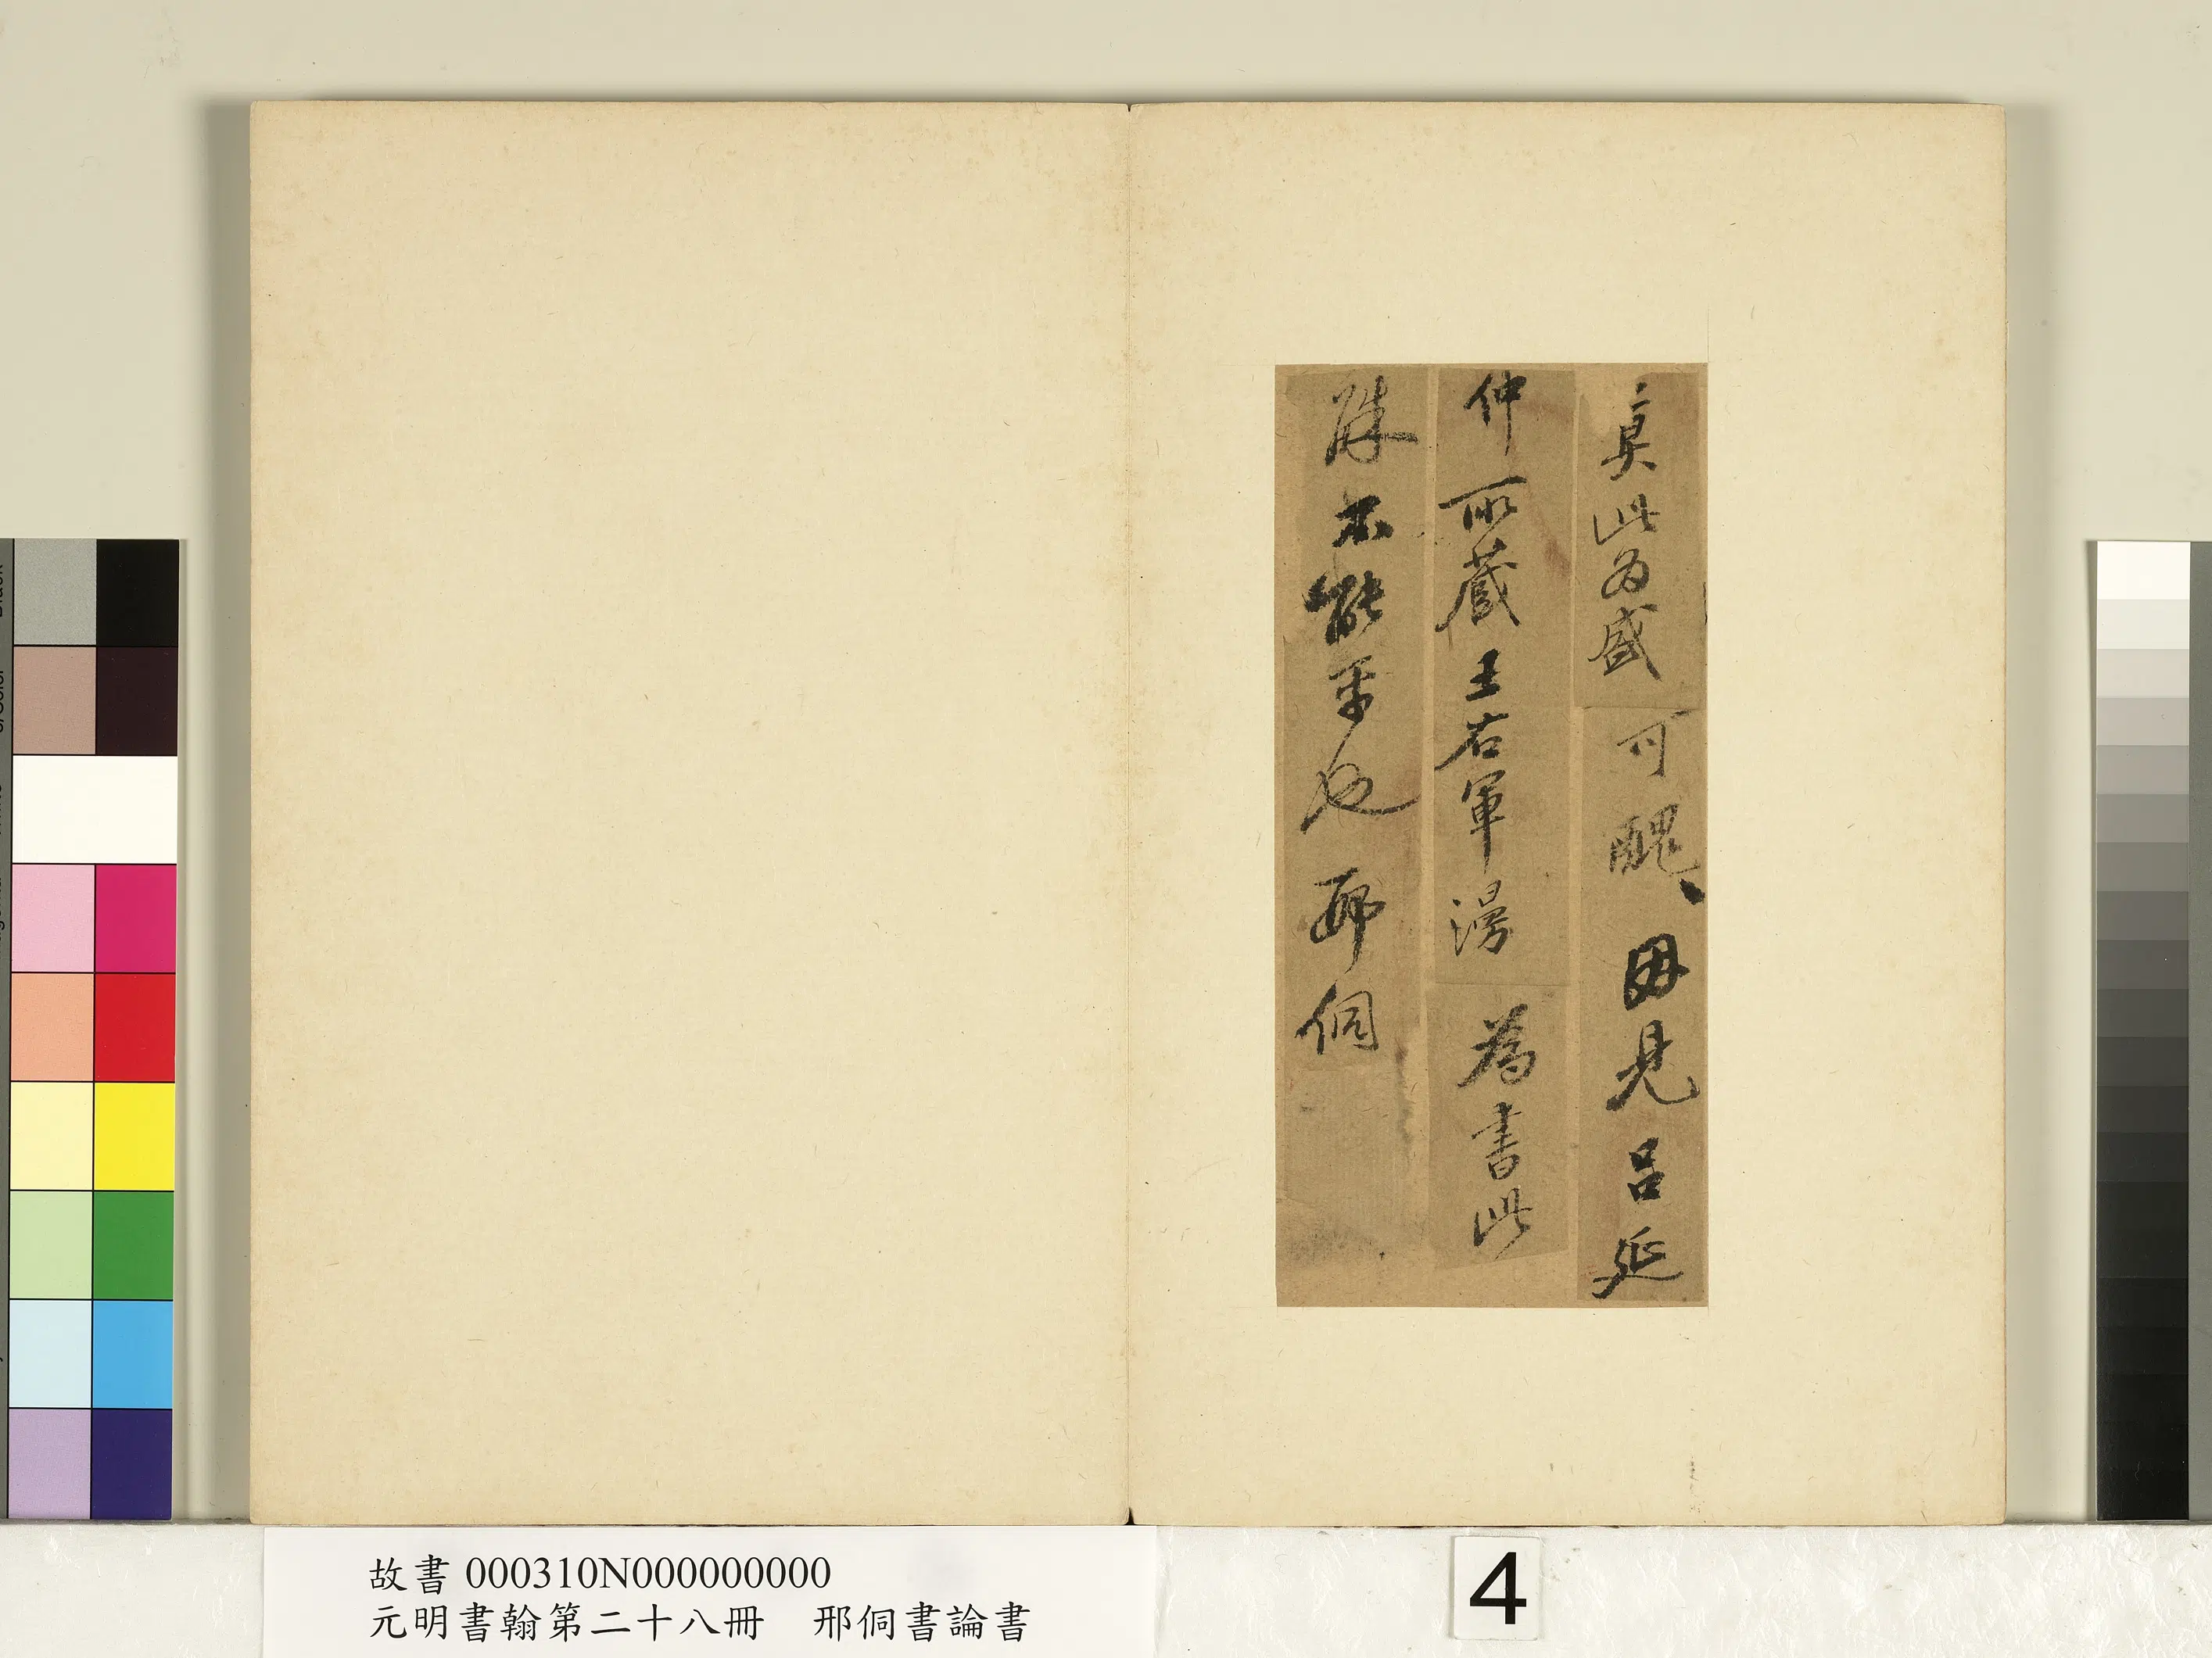 莫此為盛可醜、因見呂延
仲所藏王右軍漫為書此
殊不能平也邢侗
故書 000310N000000000
元明書翰第二十八冊 邢侗書論書
4